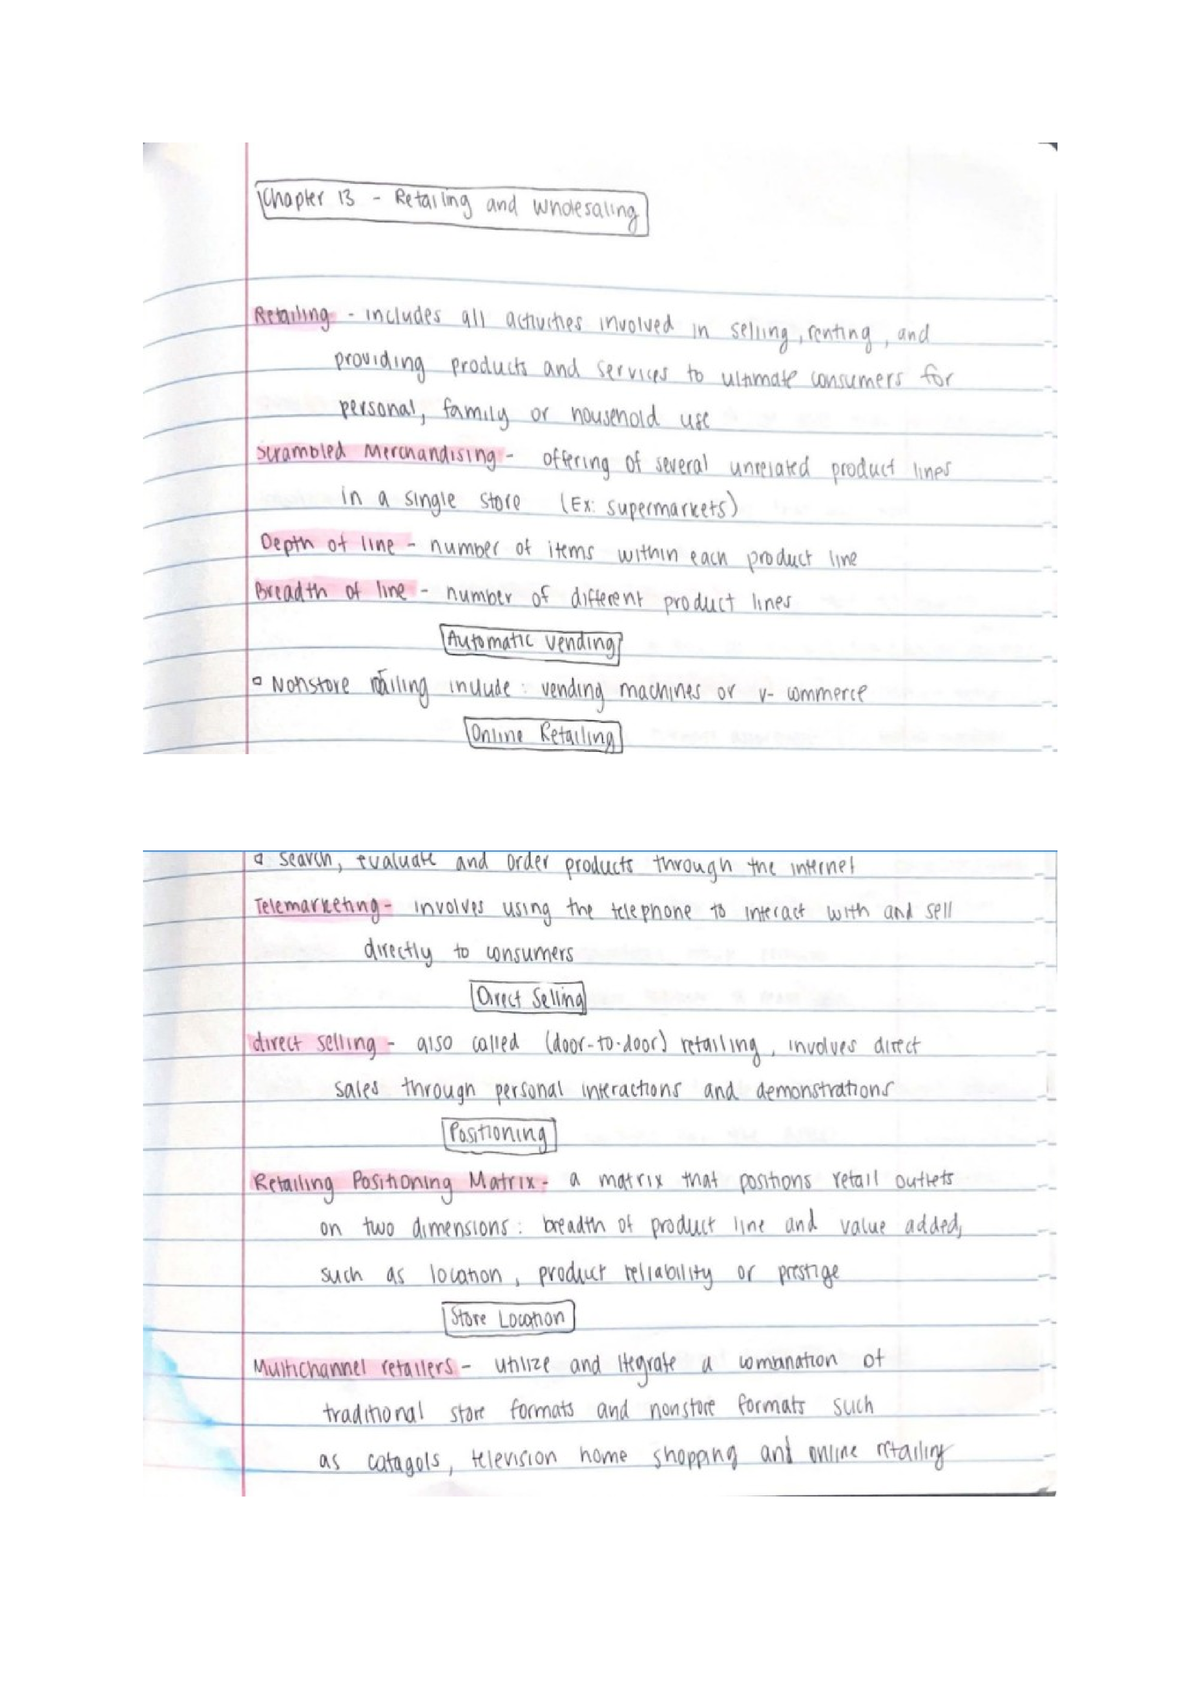 Chapter 13 - Retailing and Wholesaling
Retailing - includes all activities involved in selling, renting, and
providing products and services to ultimate consumers for
personal, family or household use
Scrambled Merchandising - offering of several unrelated product lines
in a single store (Ex: supermarkets)
Depth of line - number of items within each product line
Breadth of line - number of different product lines
Automatic Vending
Nonstore include: vending machines or v-commerce
Online Retailing
search, evaluate and order products through the internet
Telemarketing - involves using the telephone to interact with and sell
directly to consumers
Direct Selling
direct selling - also called (door-to-door) retailing, involves direct
sales through personal interactions and demonstrations
Positioning
Retailing Positioning Matrix - a matrix that positions retail outlets
on two dimensions: breadth of product line and value added,
such as location, product reliability or prestige
Store Location
Multichannel retailers - utilize and itegrate a combination of
traditional store formats and nonstore formats such
as catagols, television home shopping and online retailing